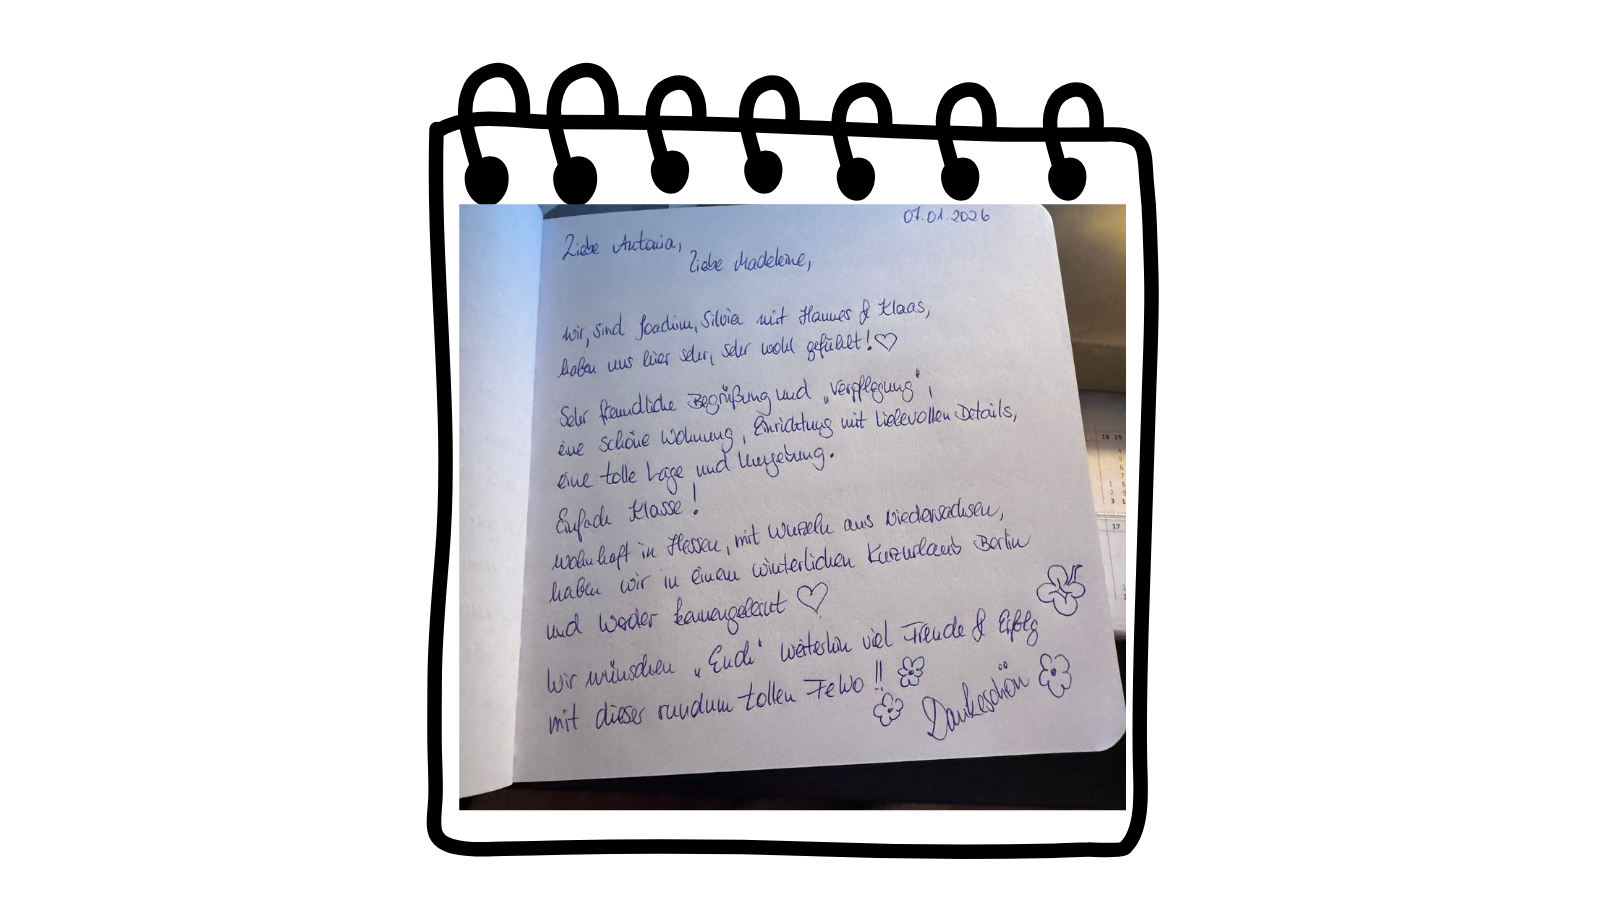 07.01.2026
Liebe Antonia,
Liebe Madeleine,
wir, sind Joachim, Silvia mit Hannes & Klaas,
haben uns hier sehr, sehr wohl gefühlt!♡
Sehr freundliche Begrüßung und „Verpflegung“,
eine schöne Wohnung, Einrichtung mit liebevollen Details,
eine tolle Lage und Umgebung.
Einfach Klasse!
wohnhaft in Hessen, mit Wurzeln aus Niedersachsen,
haben wir in einem winterlichen Kurzurlaub Berlin
und Werder kennengelernt ♡
Wir wünschen „Euch“ weiterhin viel Freude & Erfolg
mit dieser rundum tollen FeWo!!
Dankeschön
18 19
17